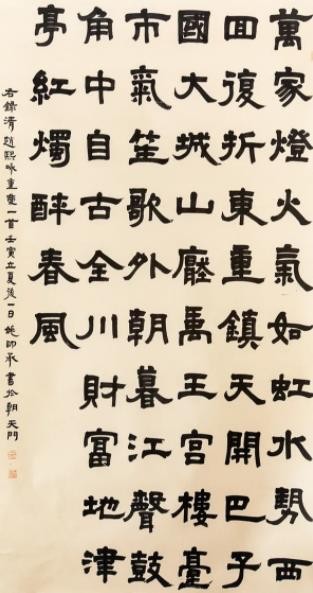 萬家燈火氣如虹水勢西
回復折東重鎮天開巴子
國大城山壓禹王宮樓臺
市氣笙歌外朝暮江聲鼓
角中自古全川財富地津
亭紅燭醉春風
右錄清趙熙咏重慶一首壬寅立夏後一日姚書於朝天門